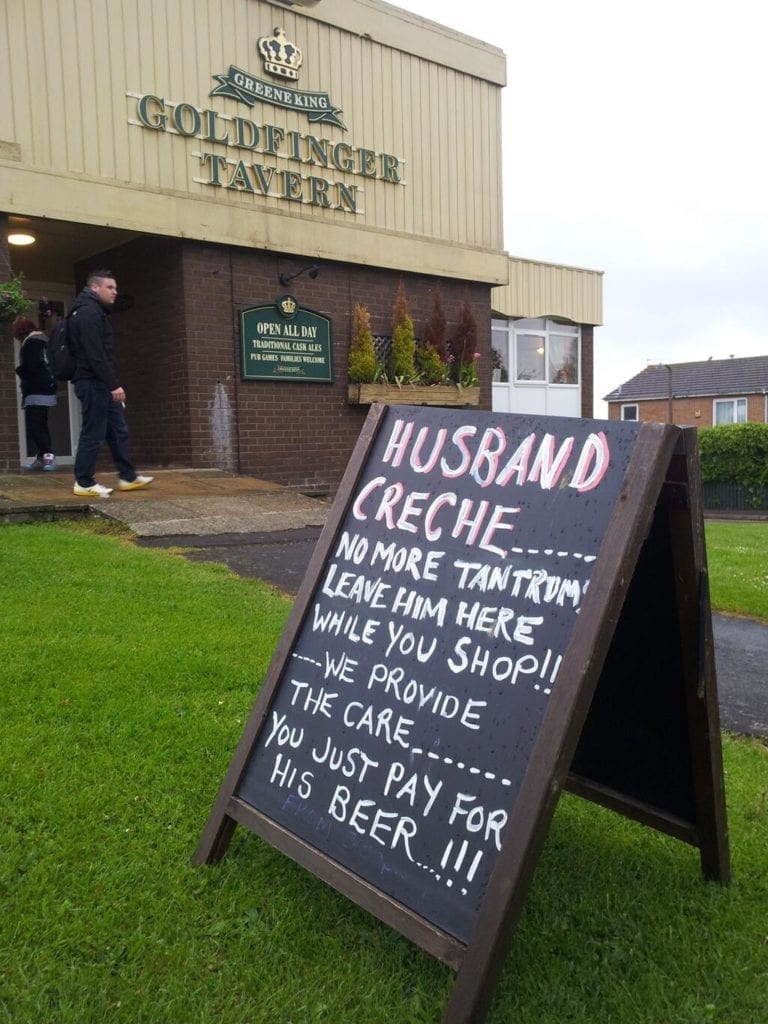 GREENE KING
GOLDFINGER
TAVERN
OPEN ALL DAY
TRADITIONAL CASK ALES
PUB GAMES FAMILIES WELCOME
HUSBAND
CRECHE------
NO MORE TANTRUMS
LEAVE HIM HERE
WHILE YOU SHOP!!
----WE PROVIDE
THE CARE--------
YOU JUST PAY FOR
HIS BEER....!!!